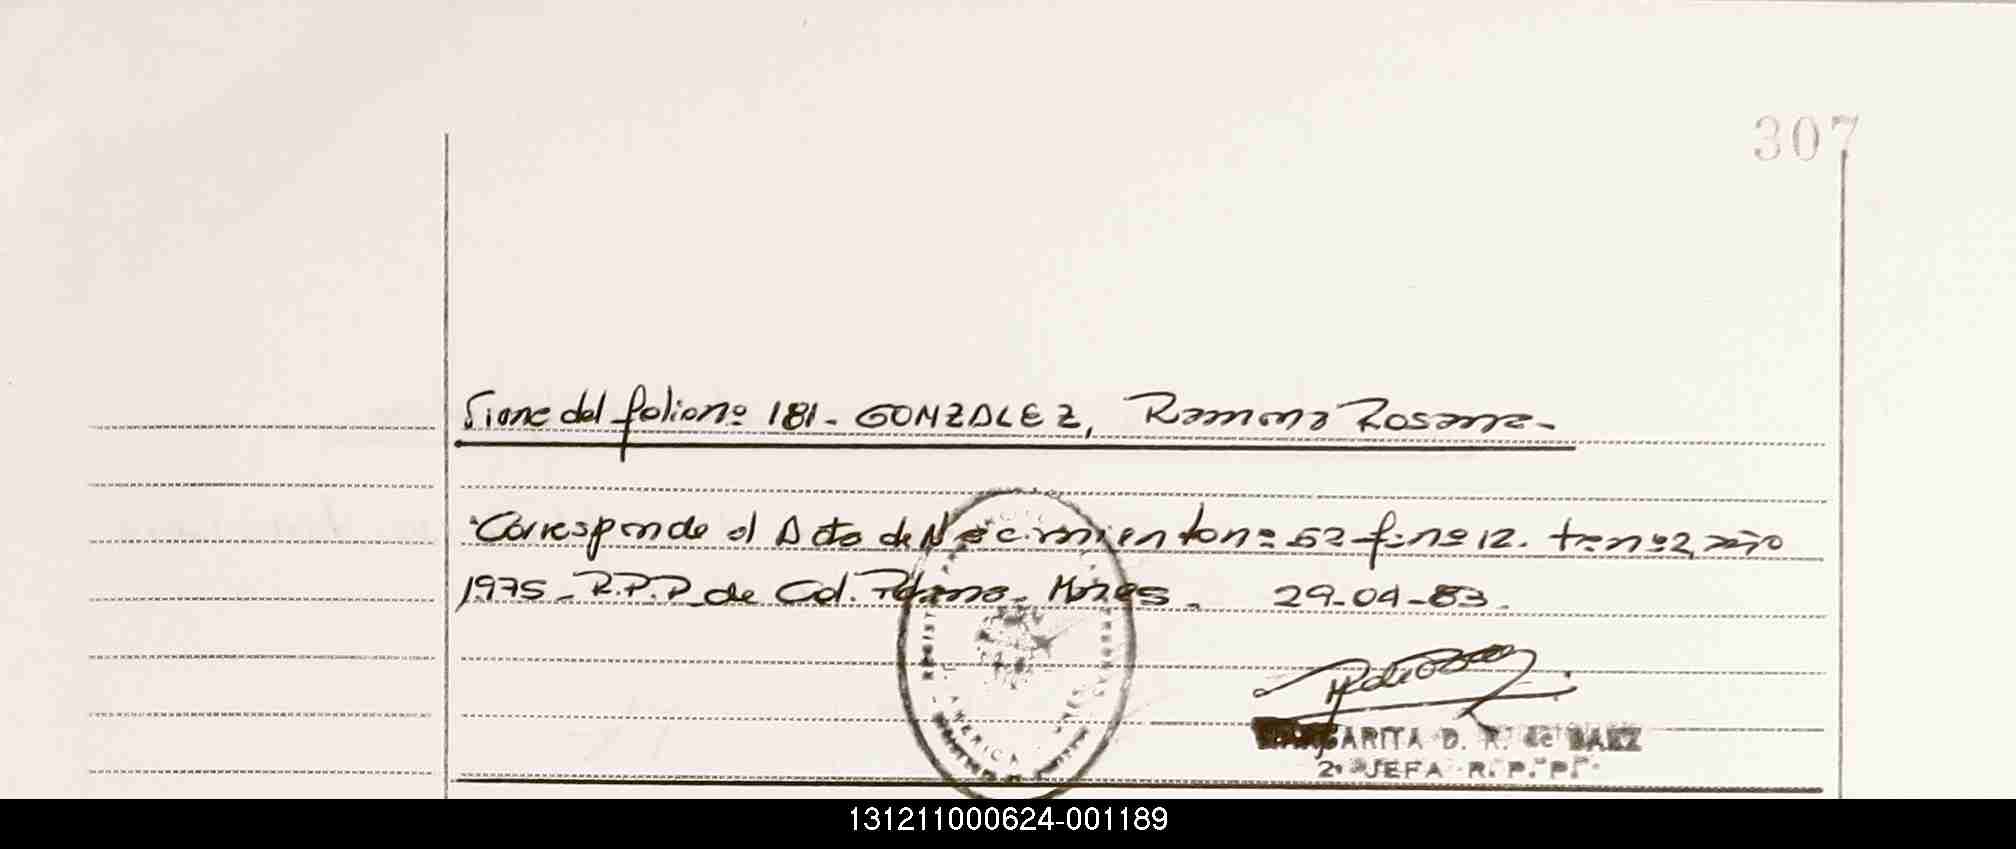 307
Viene del folio nº 181- GONZALEZ, Ramona Rosana-
Corresponde al Acta de Nacimiento nº 52 fº nº 12. tº nº 2, año
1975- R.P.P. de Cd. Mnes. 29-04-83.
MARGARITA D. R. de BAEZ
2º JEFA R. P. P.
AMERICA
131211000624-001189